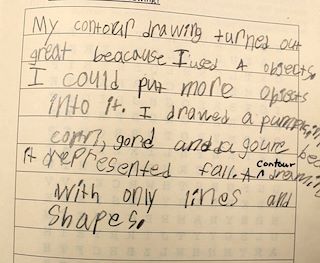 My contour drawing turned out
great beacause I used A objects.
I could put more objects
into it. I drawed a pumpkin
corn, gord and a goure bec
it represented fall. A contour drawing
with only lines and
shapes.